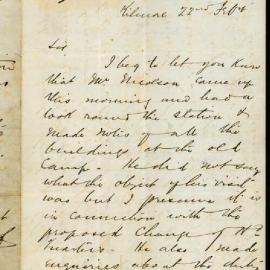 Kilmore 22nd Feby
Sir
I beg to let you know
that Mr Nicolson came up
this morning and had a
look round the station &
made notes of all the
buildings at the old
Camp. He did not say
what the object of his visit
was but I presume it is
in connection with the
proposed Change of Hd
Quarters. He also made
enquiries about the